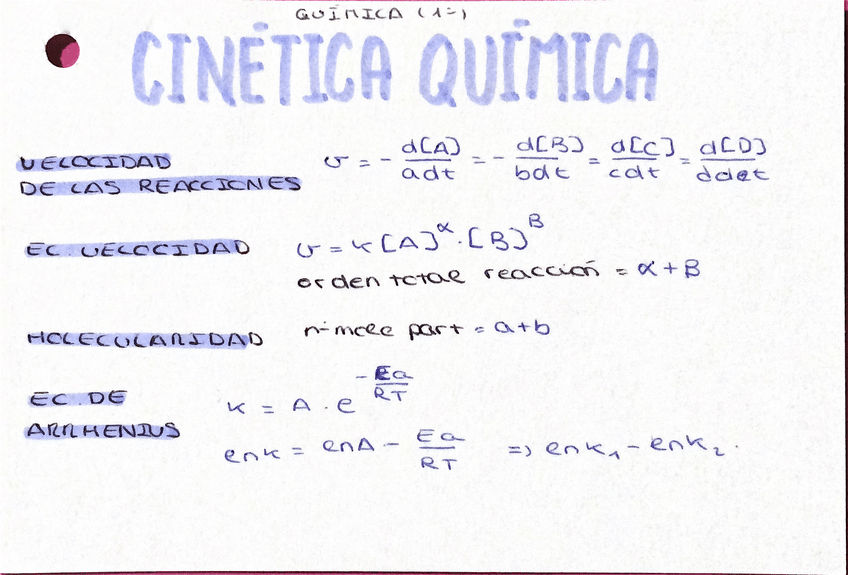 QUÍMICA (1-)
CINÉTICA QUÍMICA
VELOCIDAD
DE LAS REACCIONES
v = - d[A]/adt = - d[B]/bdt = d[C]/cdt = d[D]/ddt
EC. VELOCIDAD v = k[A]^α · [B]^β
orden total reacción = α + β
MOLECULARIDAD nº mole part = a+b
EC. DE
ARRHENIUS
k = A · e^(-Ea/RT)
lnk = lnA - Ea/RT => lnk₁ - lnk₂.